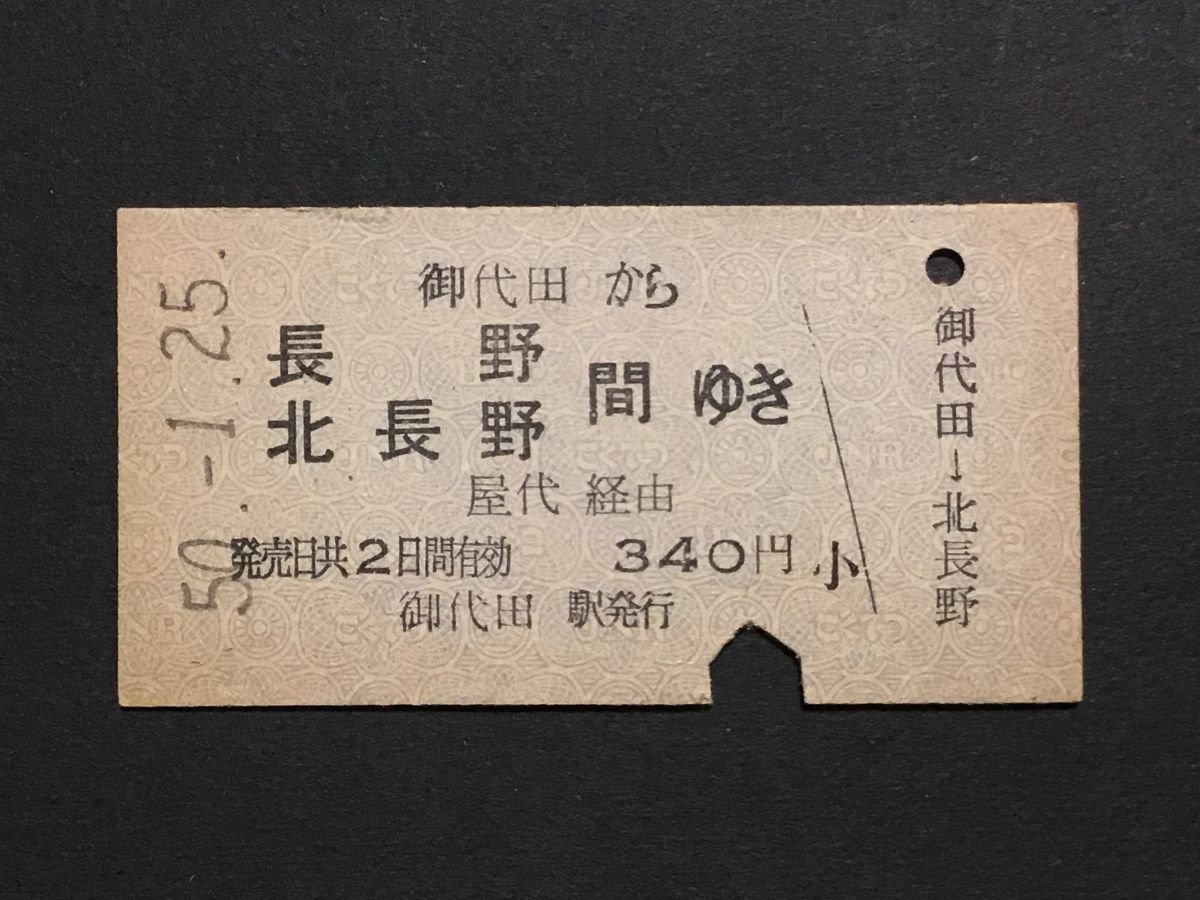 50.-1.25.
御代田 から
長野
北長野 間 ゆき
屋代 経由
発売日共2日間有効 340円
御代田 駅発行
小
御代田→北長野